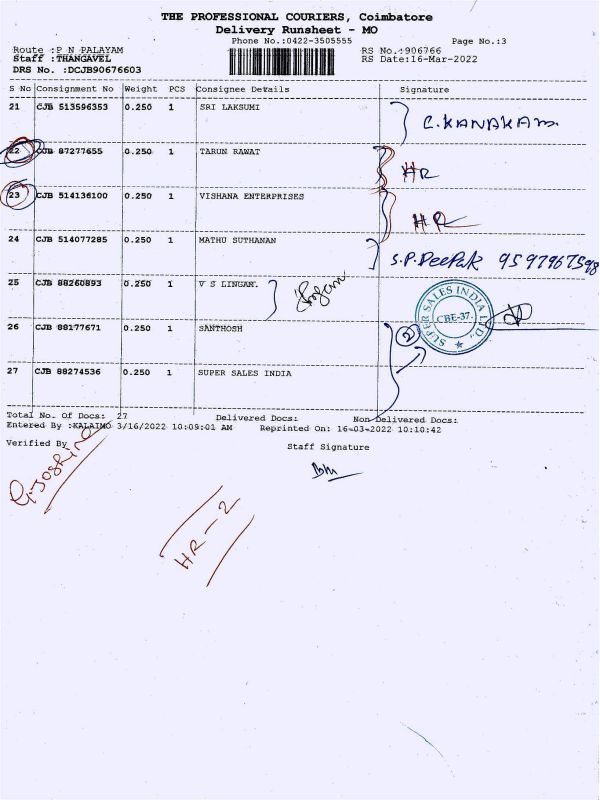 THE PROFESSIONAL COURIERS, Coimbatore
Delivery Runsheet - MO
Phone No.:0422-3505555 Page No.:3
Route :P N PALAYAM RS No.:906766
Staff :THANGAVEL RS Date:16-Mar-2022
DRS No. :DCJB90676603
S No Consignment No Weight PCS Consignee Details Signature
21 CJB 513596353 0.250 1 SRI LAKSUMI C.KANAKAM.
22 CJB 87277655 0.250 1 TARUN RAWAT HR
23 CJB 514136100 0.250 1 VISHANA ENTERPRISES HR
24 CJB 514077285 0.250 1 MATHU SUTHANAN S.P.Deepak 9597967598
25 CJB 88260893 0.250 1 V S LINGAM.
SUPER SALES INDIA LTD.,
CBE-37.
26 CJB 88177671 0.250 1 SANTHOSH 2
27 CJB 88274536 0.250 1 SUPER SALES INDIA
Total No. Of Docs: 27 Delivered Docs: Non Delivered Docs:
Entered By :KALAIMO 3/16/2022 10:09:01 AM Reprinted On: 16-03-2022 10:10:42
Verified By
Staff Signature
HR - 2